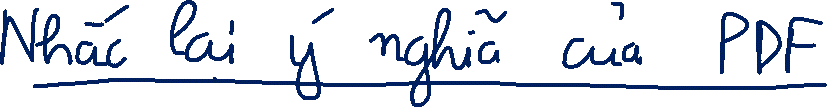 Nhắc lai ý nghiã của PDF